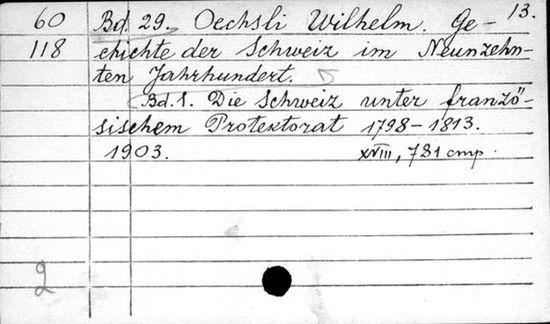 13.
60 Bd. 29. Oechsli Wilhelm. Ge-
118 chichte der Schweiz im Neunzehn-
ten Jahrhundert.
Bd. 1. Die Schweiz unter franzö-
sischem Protektorat 1798-1813.
1903. XVIII, 781 стр.
2